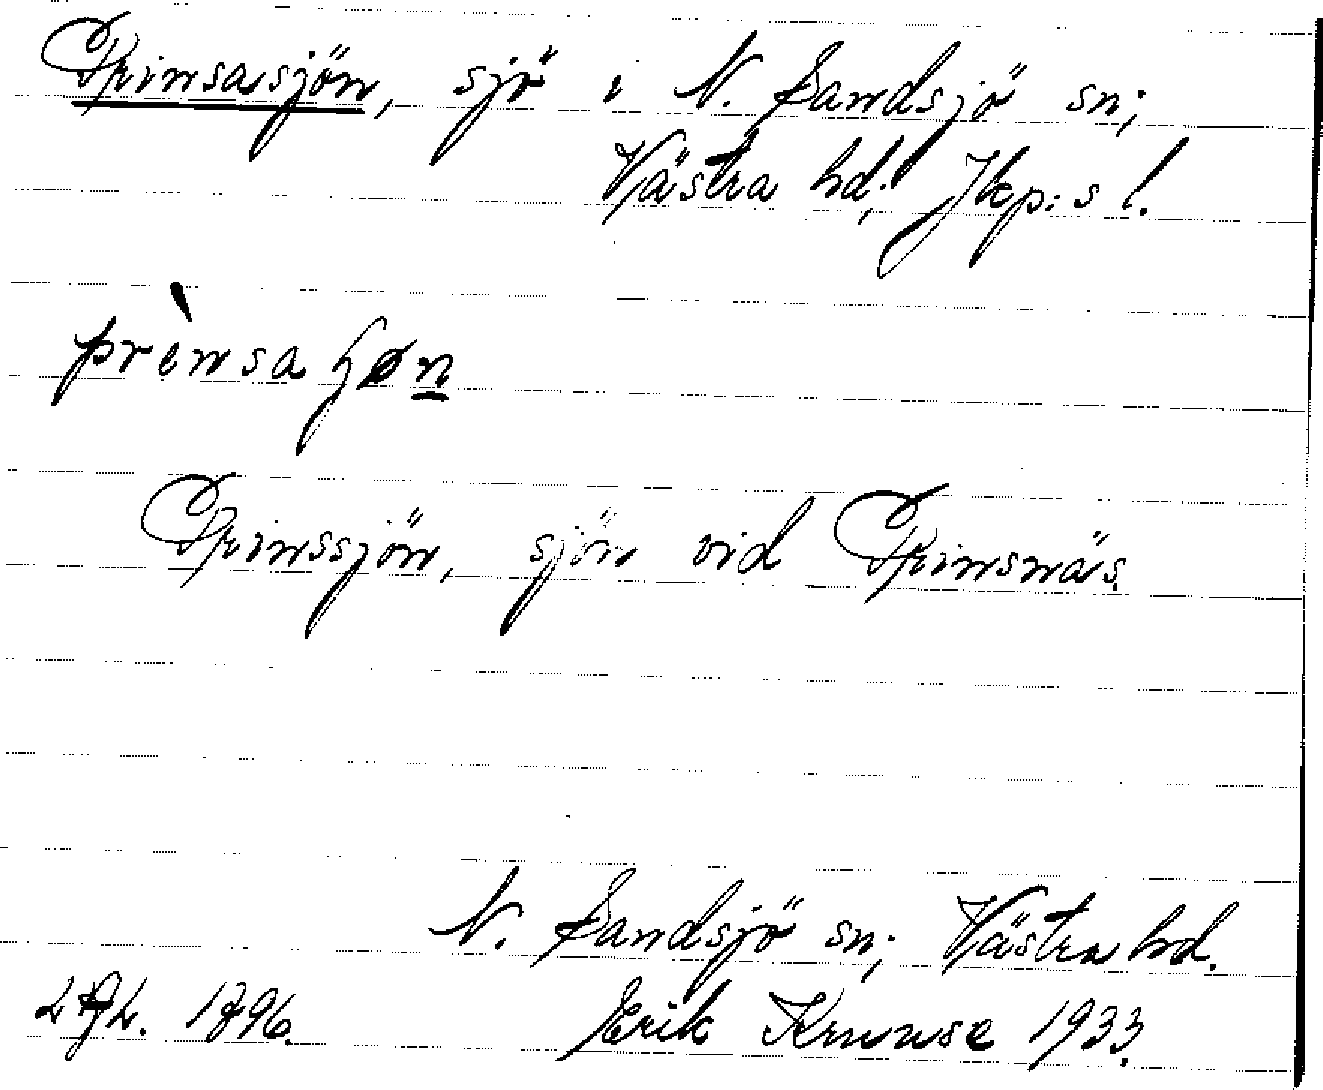 Prinsasjön, sjö i N. Sandsjö sn;
Västra hd; Jkp:s l.
prinsa ɧøn
Prinssjön, sjön vid Prinsnäs.
N. Sandsjö sn; Västra hd.
1896. Erik Kruuse 1933.